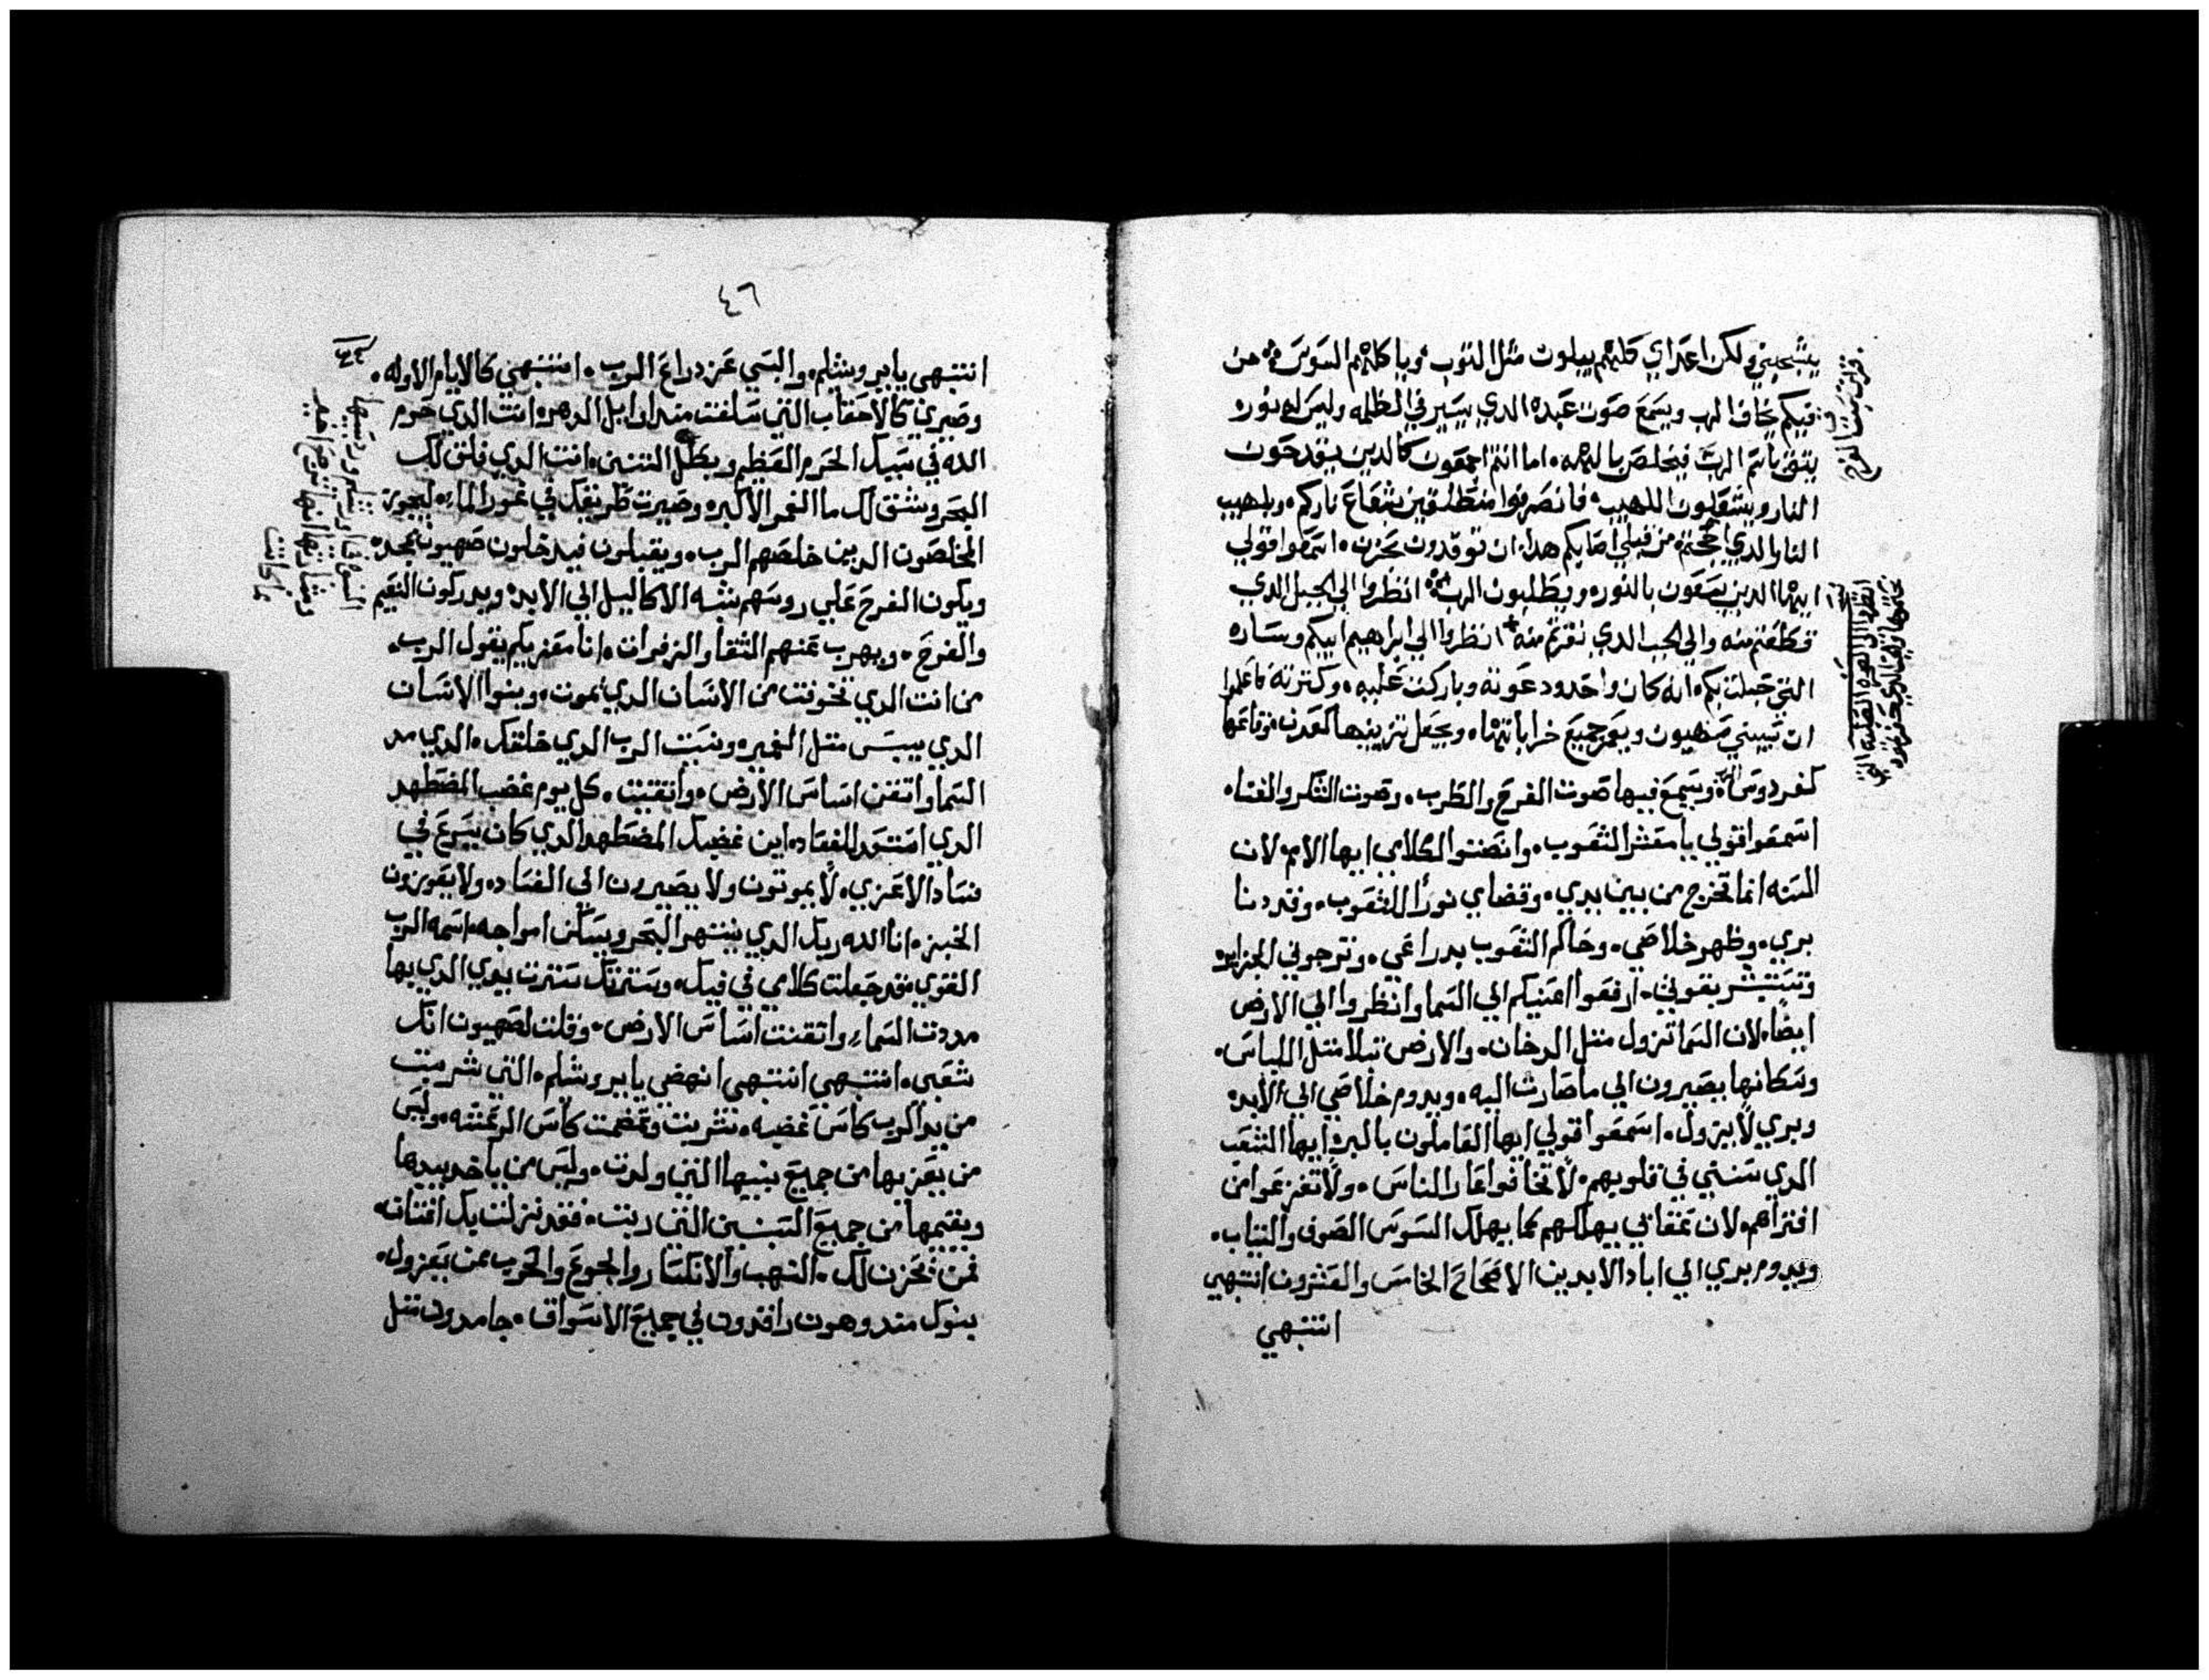 يشجبني ولكن اعداي كلهم يبلون مثل الثوب وياكلهم السوس من
فيكم يخاف الرب ويسمع صوت عبده الدي يسير في الظلمه وليس له نوره
يتق باسم الرب فيخلص بالهه اما انتم اجمعون كالدين يقدحون
النار ويشعلون اللهيب فانصرفوا منطلقين بشعاع ناركم وبلهيب
النار الدي من قبلي اصابكم هدا ان توقدون بحزن اسمعوا قولي
ايها الدين يسعون بالنوره ويطلبون الرب انظروا الي الجبل الدي
قطعتم منه والي الجب الدي نقرتم منه انظروا الي ابراهيم ابيكم وساره
التي حبلت بكم انه كان واحد ودعوته وباركت عليه وكترته فاعلموا
ان تبيني صهيون ويعمر جميع خراباتها ويجعل تزينها كعدن وقاعها
كفردوس الله ويسمع فيها صوت الفرح والطرب وصوت الشكر والغناء
اسمعوا قولي يا معشر الشعوب وانصتوا لكلامي ايها الامم لان
السنه انما تخرج من بين يدي وقضاي نورا للشعوب وقد دنا
بري وظهر خلاصي وحاكم الشعوب بدراعي وترجوني الجزاير
وتستبشر بقوتي ارفعوا اعينكم الي السما وانظروا الي الارض
ايضا لان السما تزول متل الدخان والارض تبلا متل اللباس
وسكانها يصيرون الي ما صارت اليه ويدوم خلاصي الي الابد
وبري لا يزول اسمعوا قولي ايها العاملون بالبر ايها الشعب
الدي سنتي في قلوبهم لا تخافوا عار الناس ولا تفزعوا من
افتراهم لان عقابي يهلكهم كما يهلك السوس الصوف والتياب
ويدوم بري الي اباد الابدين الاصحاح الخامس والعشرون انتبهي
انتبهي
٤٦
انتبهي يا يروشلم والبسي عز دراع الرب انتبهي كالايام الاوله
وصيري كالاحقاب التي سلفت مند اوايل الدهر انت الدي حرم
الله في سبيك الحرم العظيم وبطل التنين انت الدي فلق لك
البحر وشق لك ما الغمر الاكبر وصيرت طريقك في غور الماء ليجوز
المخلصون الدين خلصهم الرب ويقبلون فيدخلون صهيون بمجد
ويكون الفرح علي روسهم شبه الاكاليل الي الابد ويدركون النعيم
والفرح ويهرب عنهم الشقا والزفرات انا معزيكم يقول الرب
من انت الدي تخوفت من الانسان الدي يموت وبنوا الانسان
الدي ييبس متل العمير ونسيت الرب الدي خلقك الدي مد
السما واتقن اساس الارض واتقيت كل يوم غضب المضطهد
الدي استعد للفساد اين غضبك المضطهد الدي كان يسرع في
فساد الاعزي لا يموتون ولا يصيرون الي الفساد ولا يعوزون
الخبز انا الله ربك الدي ينتهر البحر ويسكن امواجه اسمه الرب
القوي قد جعلت كلامي في فيك وسترتك سترت يدي الدي بها
مددت السماء واتقنت اساس الارض وقلت لصهيون انك
شعبي انتبهي انتبهي انهضي يا يروشلم التي شربت
من يد الرب كاس غضبه شربت وتمضمت كاس الرعشه وليس
من يعزيها من جميع بنيها التي ولدت وليس من ياخد بيدها
ويقيمها من جميع البنين التي ربت فقد نزلت بك افتان
فمن يحزن لك النهب والانكسار والجوع والحرب من يعزول
بنوك مندوهون راقدون في جميع الاسواق جامدون متل